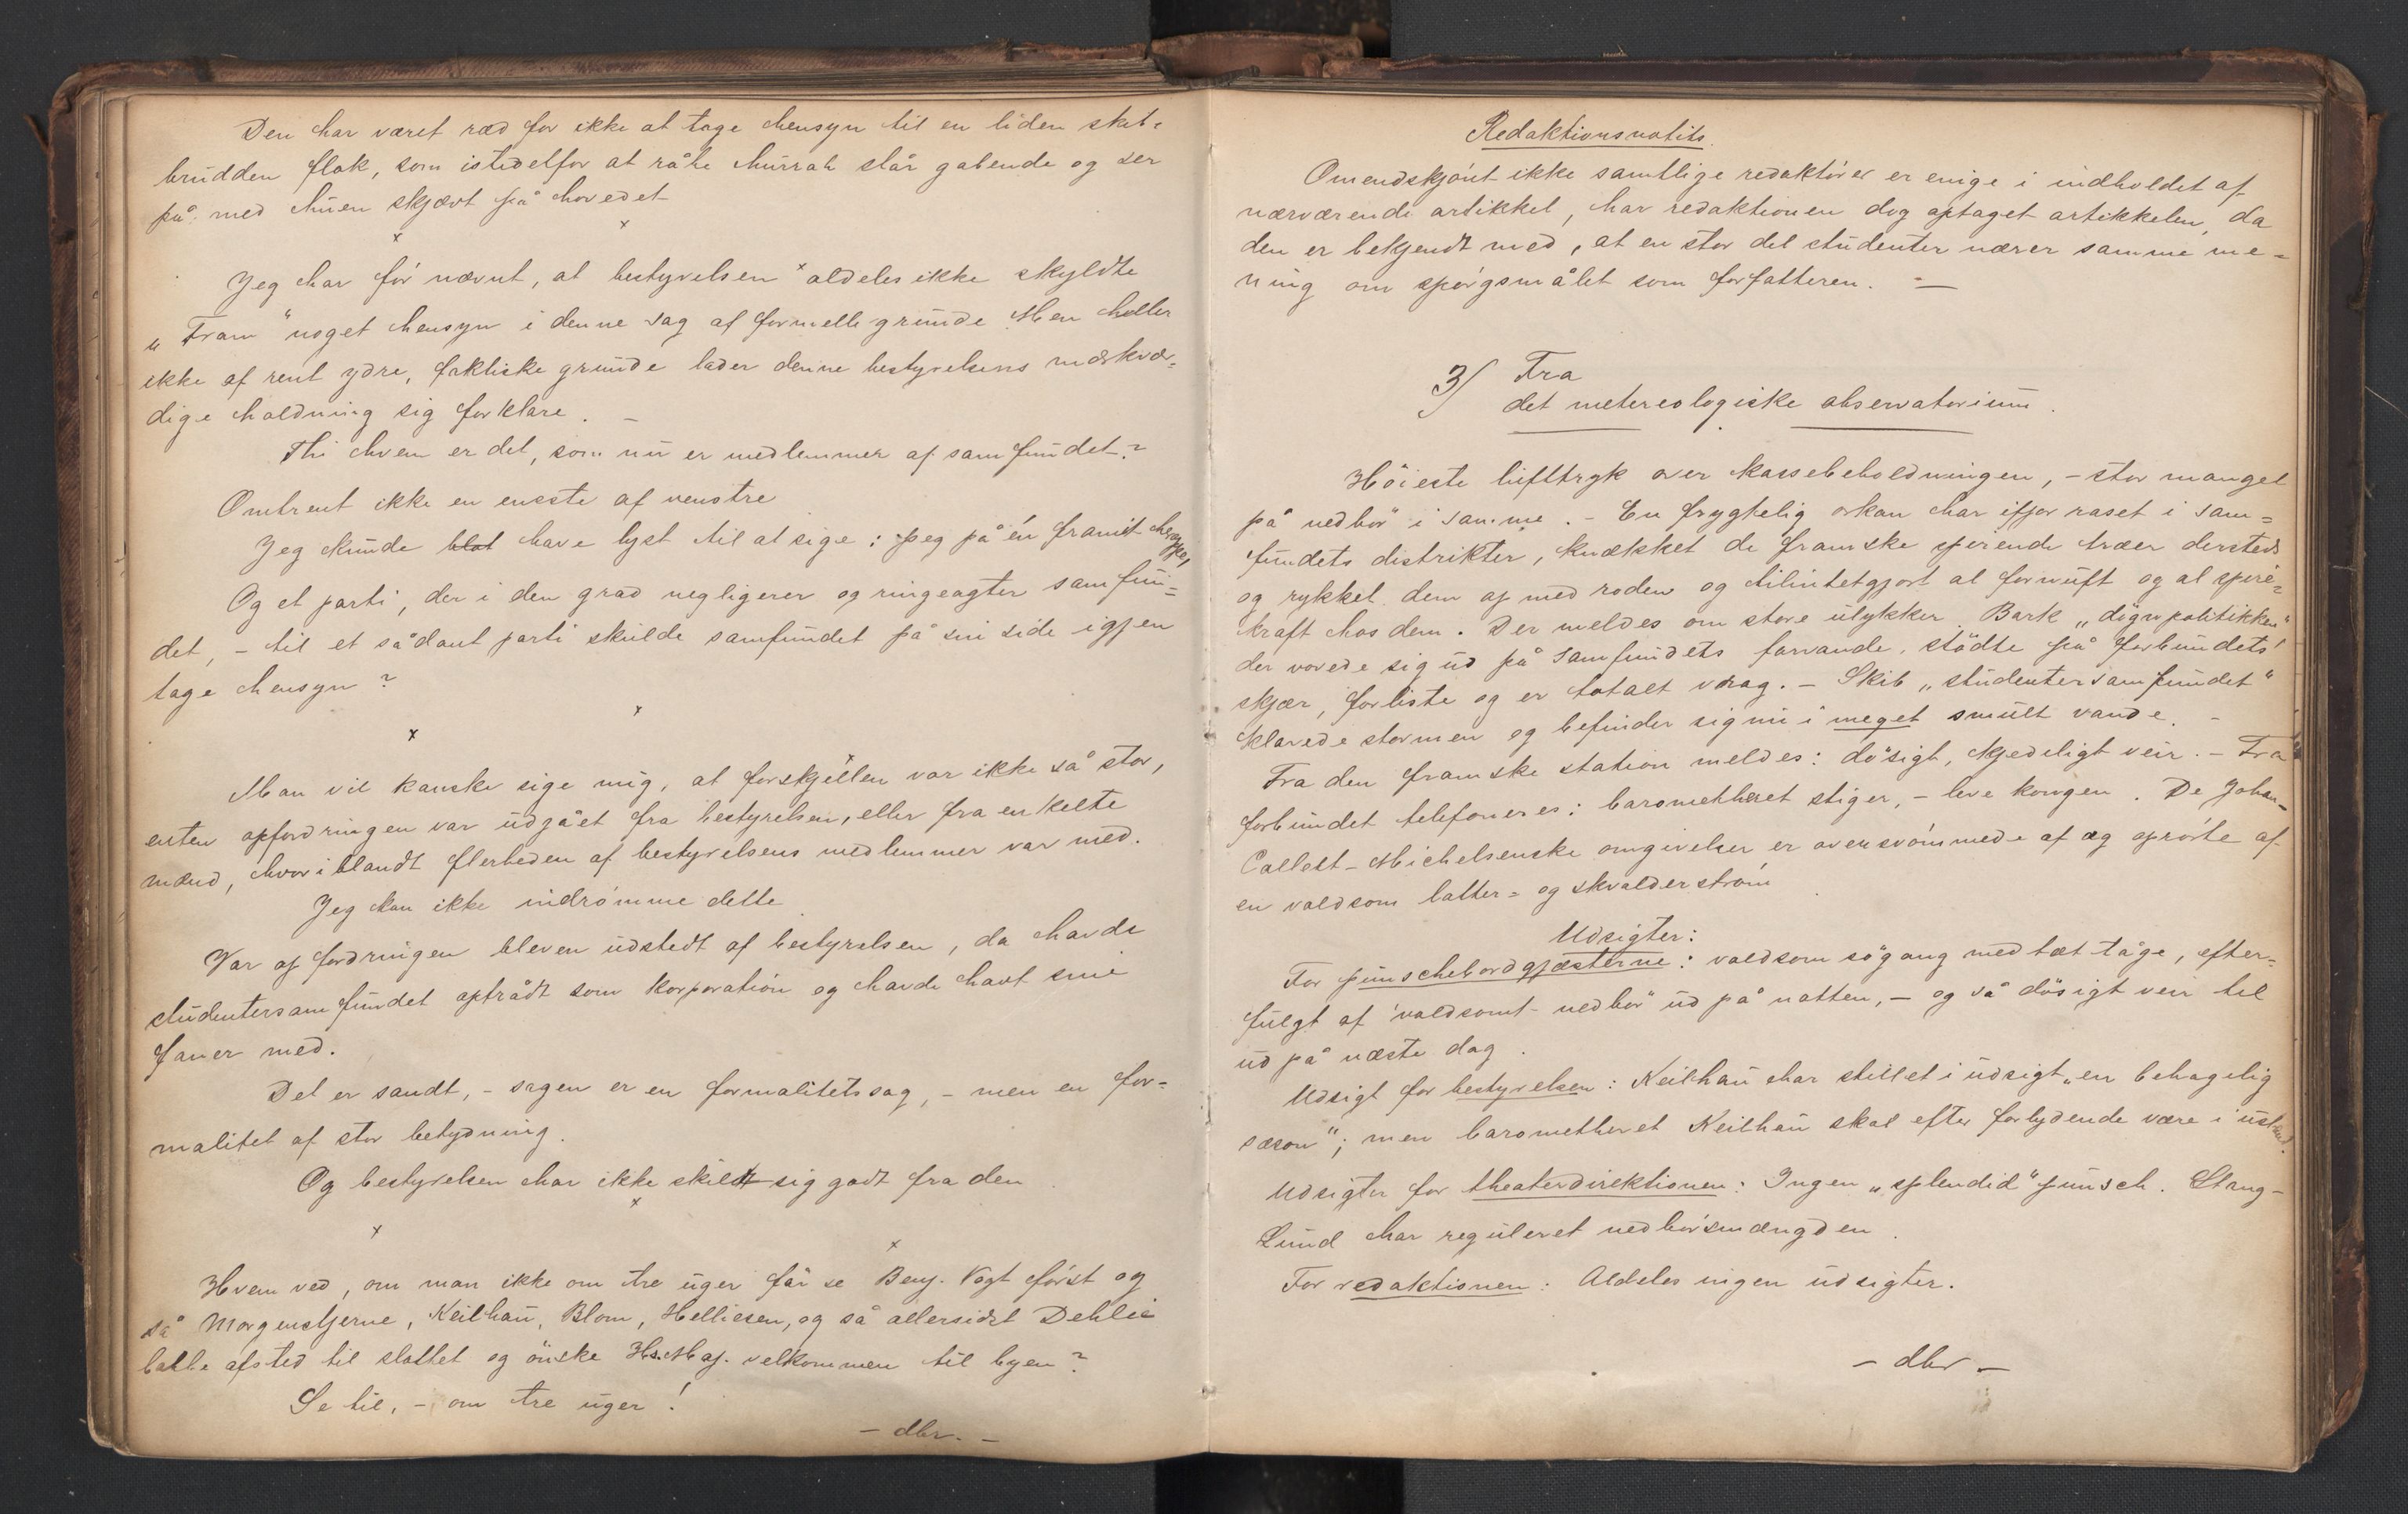 Den har været ræd for ikke at tage hensyn til en liden skib-
brudden flok, som istedetfor at råbe hurrah står gabende og ser
på med huen skjævt på hovedet
x x x
Jeg har før nævnt, at bestyrelsen aldeles ikke skyldte
„Fram" noget hensyn i denne sag af formelle grunde. Men heller
ikke af rent ydre, faktiske grunde lader denne bestyrelsens mærkvær-
dige holdning sig forklare. –
Thi hvem er det, som nu er medlemmer af samfundet?
Omtrent ikke en eneste af venstre
Jeg kunde blot have lyst til at sige: Peg på én framit
Og et parti, der i den grad negligerer og ringeagter samfun=
det, – til et sådant parti skulde samfundet på sin side igjen
tage hensyn?
x x x
Man vil kanske sige mig, at forskjellen var ikke så stor,
enten opfordringen var udgået fra bestyrelsen, eller fra enkelte
mænd, hvoriblandt flerheden af bestyrelsens medlemmer var med.
Jeg kan ikke indrømme dette
Var opfordringen bleven udstedt af bestyrelsen, da havde
studentersamfundet optrådt som korporation og havde havt sine
faner med.
Det er sandt, – sagen er en formalitetssag, – men en for=
malitet af stor betydning.
Og bestyrelsen har ikke skilt sig godt fra den.
x x x
Hvem ved, om man ikke om tre uger får se Benj. Vogt først og
så Morgenstjerne, Keilhau, Blom, Helliesen, og så allersidst Dehli
labbe afsted til slottet og ønske Hs. Maj. velkommen til byen?
Se til, – om tre uger!
– dbr. –
Redaktionsnotits.
Omendskjønt ikke samtlige redaktører er enige i indholdet af
nærværende artikkel, har redaktionen dog optaget artikkelen, da
den er bekjendt med, at en stor del studenter nærer samme me=
ning om spørgsmålet som forfatteren. –
3) Fra
det metereologiske observatorium.
Höieste lufttryk over kassebeholdningen, – stor mangel
på nedbör i samme. – En frygtelig orkan har ifjor raset i sam=
fundets distrikter, knækket de framske spirende træer dersteds
og rykket dem op med roden og tilintetgjort al fornuft og al spire=
kraft hos dem. Der meldes om store ulykker. Bark „dögnpolitikken"
der vovede sig ud på samfundets farvande, stödte på forbundets
skjær, forliste og er totalt vrag. – Skib „studentersamfundet"
klarede stormen og befinder sig nu i meget smult vande. –
Fra den framske station meldes: dösigt, kjedeligt veir. – Fra
forbundet telefoneres: baromethret stiger, – leve kongen. De Johan-
Collett-Michelsenske omgivelser er oversvömmede af og oprörte af
en voldsom latter= og skvalderström.
Udsigter:
For punschebordgjæsterne: voldsom sögang med tæt tåge, efter=
fulgt af voldsomt nedbör ud på natten, – og så dösigt veir til
ud på næste dag.
Udsigt for bestyrelsen: Keilhau har stillet i udsigt „en behagelig
sæson"; men baromethret Keilhau skal efter forlydende være i ustand.
Udsigter for theaterdirektionen: Ingen „splendid" punsch. Stang-
Lund har reguleret nedbörsmængden.
For redaktionen: Aldeles ingen udsigter.
– dbr –